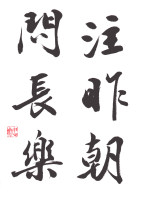 注昨朝
問長樂